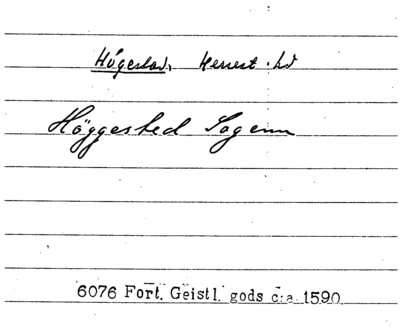 Högestad, Herrest. hd
Höggested Sogenn
6076 Fort. Geistl. gods c:a 1590